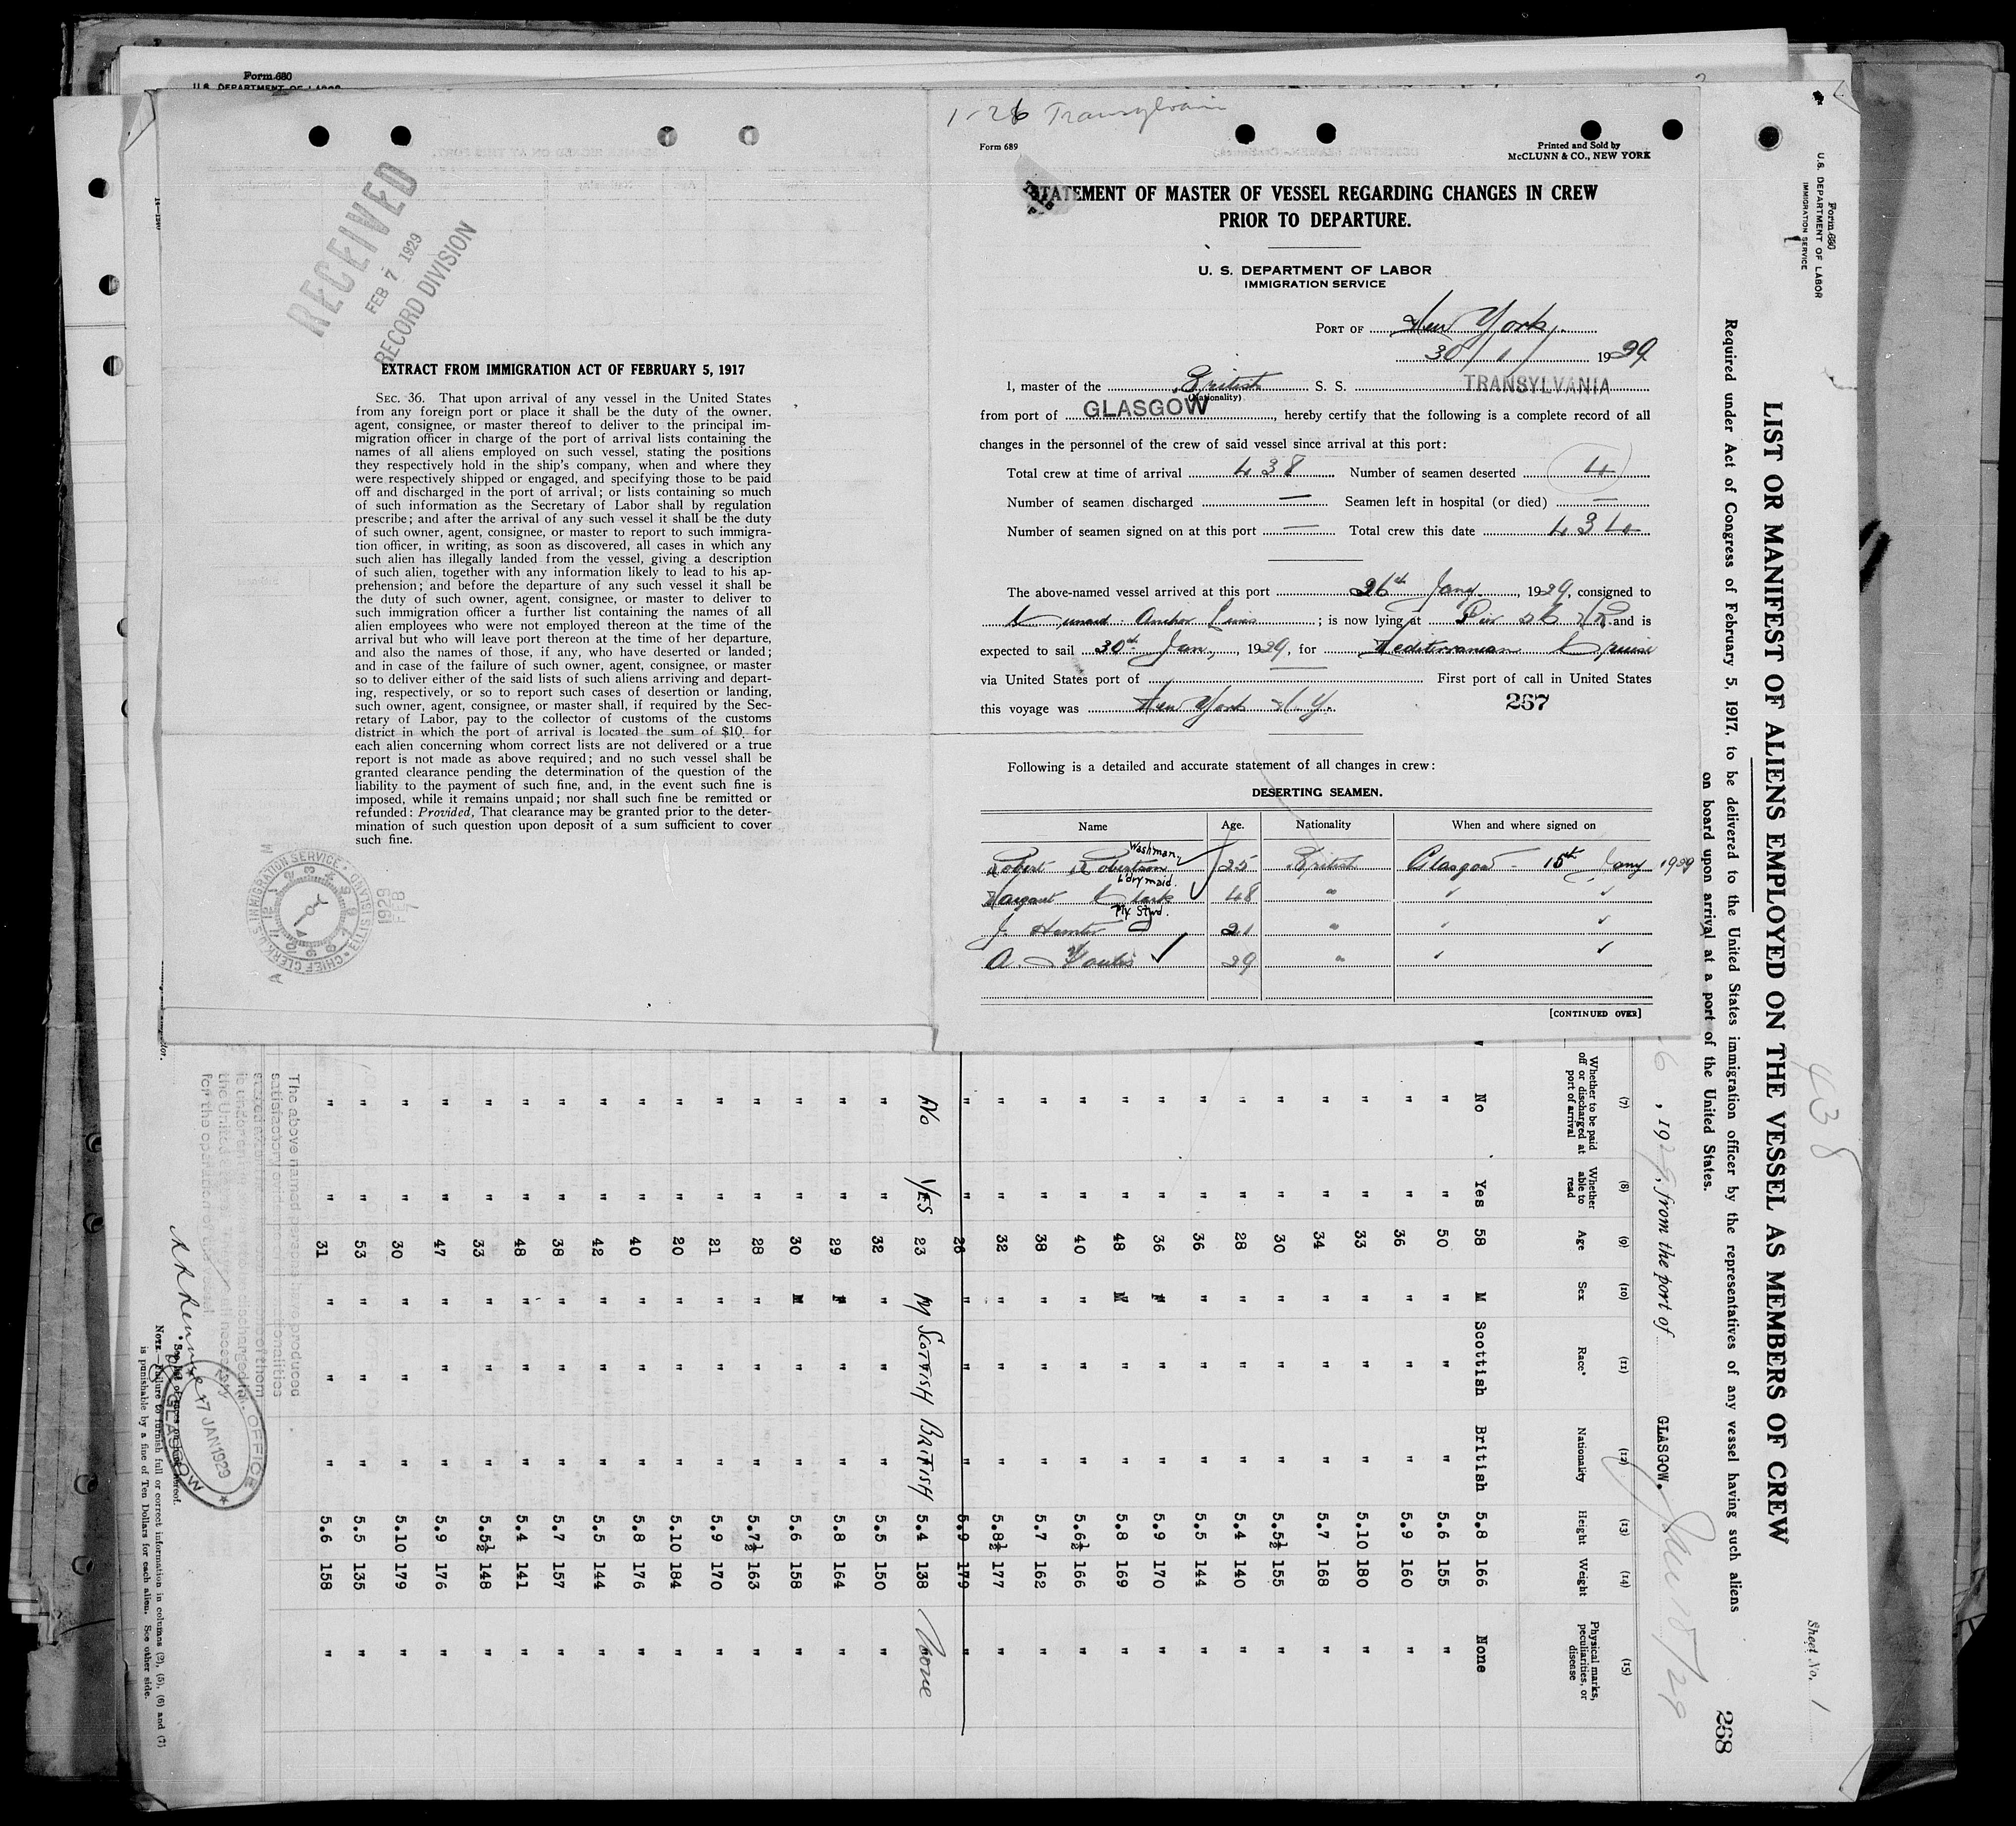 Form 680
U.S. DEPARTMENT OF LABOR
RECEIVED
FEB 7 1929
RECORD DIVISION
EXTRACT FROM IMMIGRATION ACT OF FEBRUARY 5, 1917
SEC. 36. That upon arrival of any vessel in the United States
from any foreign port or place it shall be the duty of the owner,
agent, consignee, or master thereof to deliver to the principal im-
migration officer in charge of the port of arrival lists containing the
names of all aliens employed on such vessel, stating the positions
they respectively hold in the ship's company, when and where they
were respectively shipped or engaged, and specifying those to be paid
off and discharged in the port of arrival; or lists containing so much
of such information as the Secretary of Labor shall by regulation
prescribe; and after the arrival of any such vessel it shall be the duty
of such owner, agent, consignee, or master to report to such immigra-
tion officer, in writing, as soon as discovered, all cases in which any
such alien has illegally landed from the vessel, giving a description
of such alien, together with any information likely to lead to his ap-
prehension; and before the departure of any such vessel it shall be
the duty of such owner, agent, consignee, or master to deliver to
such immigration officer a further list containing the names of all
alien employees who were not employed thereon at the time of the
arrival but who will leave port thereon at the time of her departure,
and also the names of those, if any, who have deserted or landed;
and in case of the failure of such owner, agent, consignee, or master
so to deliver either of the said lists of such aliens arriving and depart-
ing, respectively, or so to report such cases of desertion or landing,
such owner, agent, consignee, or master shall, if required by the Sec-
retary of Labor, pay to the collector of customs of the customs
district in which the port of arrival is located the sum of $10 for
each alien concerning whom correct lists are not delivered or a true
report is not made as above required; and no such vessel shall be
granted clearance pending the determination of the question of the
liability to the payment of such fine, and, in the event such fine is
imposed, while it remains unpaid; nor shall such fine be remitted or
refunded: Provided, That clearance may be granted prior to the deter-
mination of such question upon deposit of a sum sufficient to cover
such fine.
CHIEF CLERK, U.S. IMMIGRATION SERVICE • ELLIS ISLAND •
1929 FEB 7
1-26 Transylvain
Form 689
Printed and Sold by
McCLUNN & CO., NEW YORK
STATEMENT OF MASTER OF VESSEL REGARDING CHANGES IN CREW
PRIOR TO DEPARTURE.
U. S. DEPARTMENT OF LABOR
IMMIGRATION SERVICE
PORT OF New York
30/1/ 1929
I, master of the British S. S. TRANSYLVANIA
(Nationality)
from port of GLASGOW, hereby certify that the following is a complete record of all
changes in the personnel of the crew of said vessel since arrival at this port:
Total crew at time of arrival 438 Number of seamen deserted 4
Number of seamen discharged — Seamen left in hospital (or died) —
Number of seamen signed on at this port — Total crew this date 434
The above-named vessel arrived at this port 26th Jany. 1929, consigned to
Cunard Anchor Lines; is now lying at Pier 56 N.R. and is
expected to sail 30th Jan, 1929, for Mediterranean Cruise
via United States port of First port of call in United States
this voyage was New York N.Y.
267
Following is a detailed and accurate statement of all changes in crew:
DESERTING SEAMEN.
Name Age. Nationality When and where signed on
Washman
Robert Robertson 25 British Glasgow - 15th Jany 1929
L'drymaid.
Margaret Clark 48 " " "
Ply Stwd.
J. Hunter 21 " " "
A. 29 " " "
[CONTINUED OVER]
Form 680
U.S. DEPARTMENT OF LABOR
IMMIGRATION SERVICE
438
Sheet No. 1
LIST OR MANIFEST OF ALIENS EMPLOYED ON THE VESSEL AS MEMBERS OF CREW
Required under Act of Congress of February 5, 1917, to be delivered to the United States immigration officer by the representatives of any vessel having such aliens
on board upon arrival at a port of the United States.
268
6, 1929, from the port of GLASGOW. Jan 18/29
(7) (8) (9) (10) (11) (12) (13) (14) (15)
Whether to be paid off or discharged at port of arrival Whether able to read Age Sex Race* Nationality Height Weight Physical marks, peculiarities, or disease
No Yes 58 M Scottish British 5.8 166 None
" " 50 " " " 5.6 155 "
" " 36 " " " 5.9 160 "
" " 33 " " " 5.10 180 "
" " 34 " " " 5.7 168 "
" " 30 " " " 5.5½ 155 "
" " 28 " " " 5.4 140 "
" " 36 " " " 5.5 144 "
" " 36 F " " 5.9 170 "
" " 48 M " " 5.8 169 "
" " 40 " " " 5.6½ 166 "
" " 38 " " " 5.7 162 "
" " 32 " " " 5.8½ 177 "
" " 26 " " " 5.9 179 "
No YES 23 M SCOTTISH BRITISH 5.4 138 None
" " 32 " " " 5.5 150 "
" " 29 F " " 5.8 164 "
" " 30 M " " 5.6 158 "
" " 28 " " " 5.7½ 163 "
" " 21 " " " 5.9 170 "
" " 20 " " " 5.10 184 "
" " 40 " " " 5.8 176 "
" " 42 " " " 5.5 144 "
" " 38 " " " 5.7 157 "
" " 48 " " " 5.4 141 "
" " 33 " " " 5.5½ 148 "
" " 47 " " " 5.9 176 "
" " 30 " " " 5.10 179 "
" " 53 " " " 5.5 135 "
" " 31 " " " 5.6 158 "
The above named persons have produced
17 JAN 1929
OFFICE
GLASGOW
* See list of races on back hereof.
NOTE.—Failure to furnish full or correct information in columns (2), (5), (6) and (7)
is punishable by a fine of Ten Dollars for each alien. See other side.